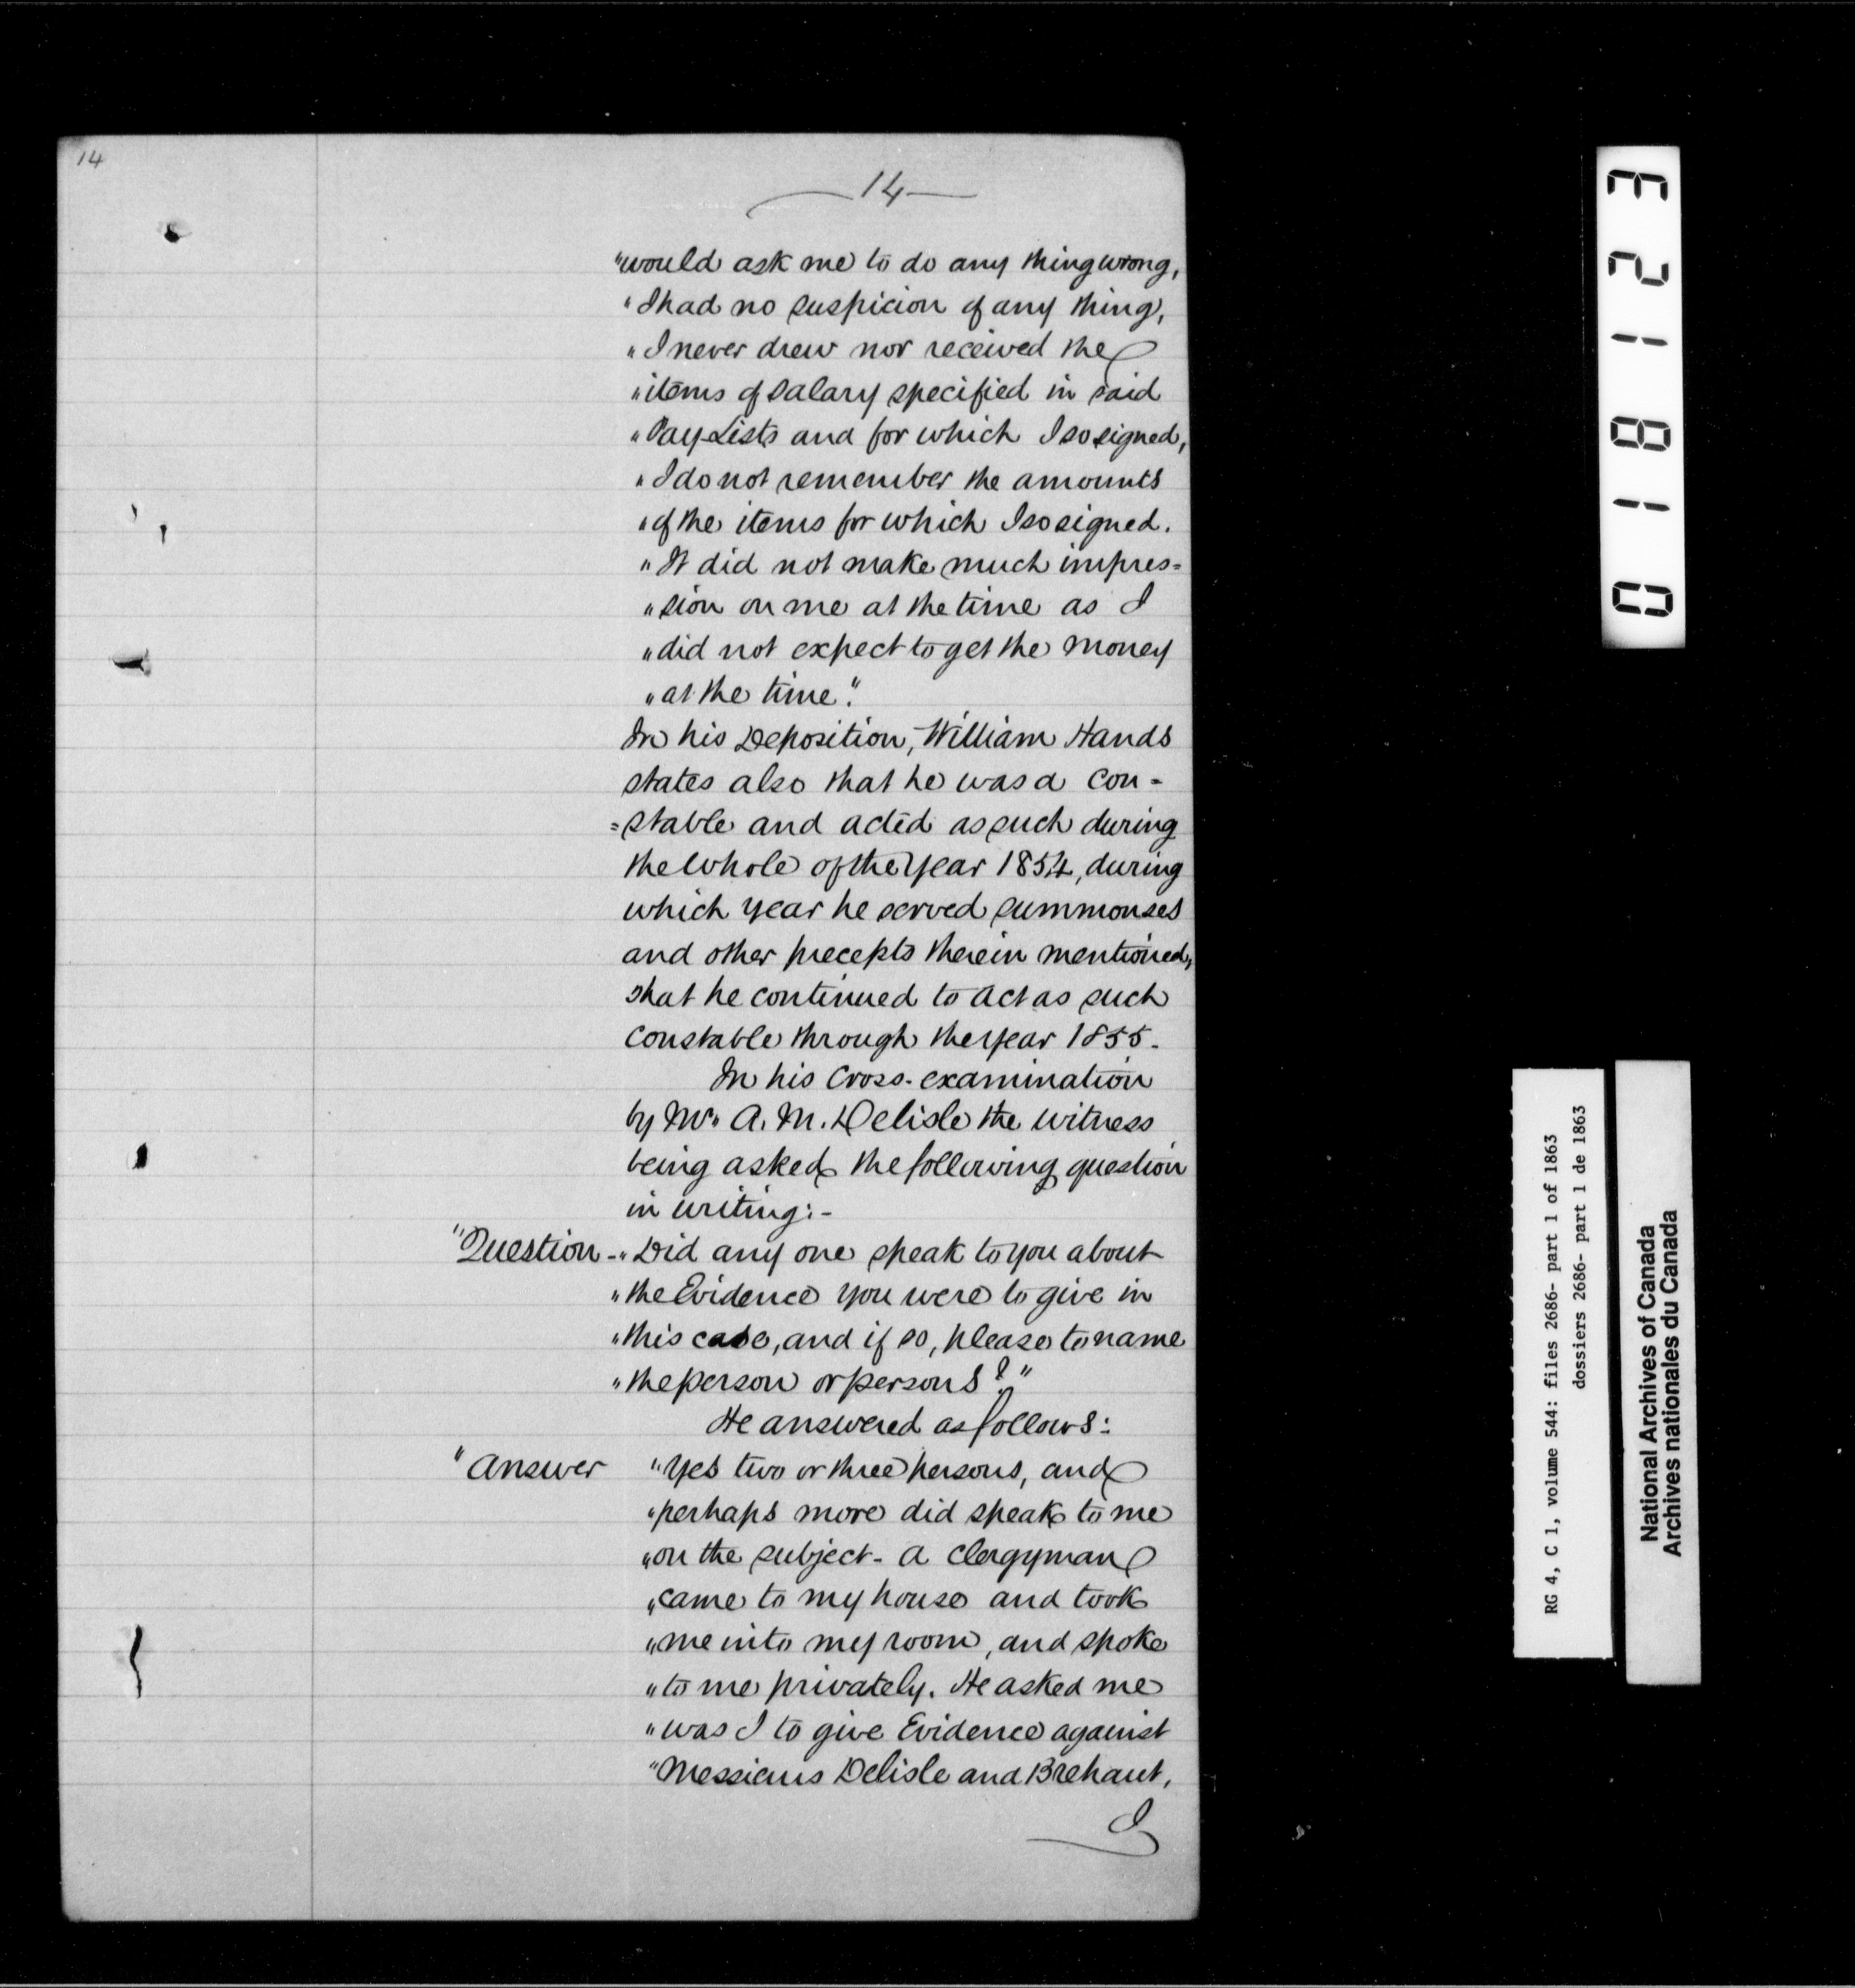 14
14
"would ask me to do any thing wrong,
"I had no suspicion of any thing,
"I never drew nor received the
"items of salary specified in said
"Pay-Lists and for which I so signed,
"I do not remember the amounts
"of the items for which I so signed.
"It did not make much impres=
"sion on me at the time as I
"did not expect to get the money
"at the time."
In his Deposition, William Hands
states also that he was a con-
=stable and acted as such during
the whole of the year 1854, during
which year he served summonses
and other precepts therein mentioned,
that he continued to act as such
constable through the year 1855.
In his Cross-examination
by Mr. A. M. Delisle the witness
being asked the following question
in writing:-
"Question-"Did any one speak to you about
"the Evidence you were to give in
"this case, and if so, please to name
"the person or persons?"
He answered as follows:
"Answer "Yes two or three persons, and
"perhaps more did speak to me
"on the subject- a clergyman
"came to my house and took
"me into my room, and spoke
"to me privately. He asked me
"was I to give Evidence against
"Messieurs Delisle and Brehaut,
I
018123
RG 4, C 1, volume 544: files 2686- part 1 of 1863
dossiers 2686- part 1 de 1863
National Archives of Canada
Archives nationales du Canada